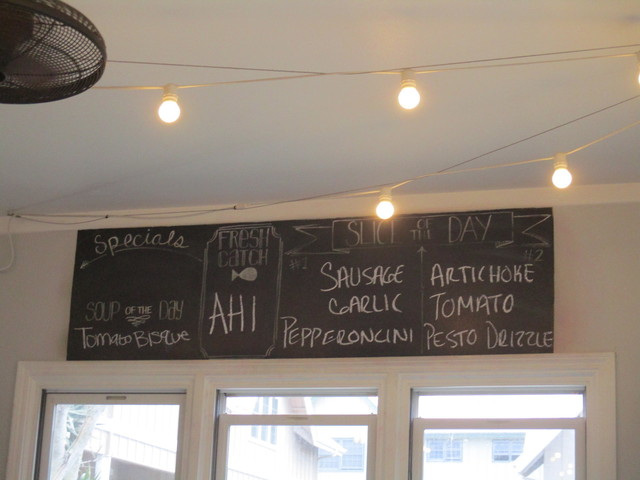 Specials
SOUP OF THE DAY
Tomato Bisque
FRESH
CATCH
AHI
SLICE OF THE DAY
#1
SAUSAGE
GARLIC
PEPPERONCINI
#2
ARTICHOKE
TOMATO
PESTO DRIZZLE